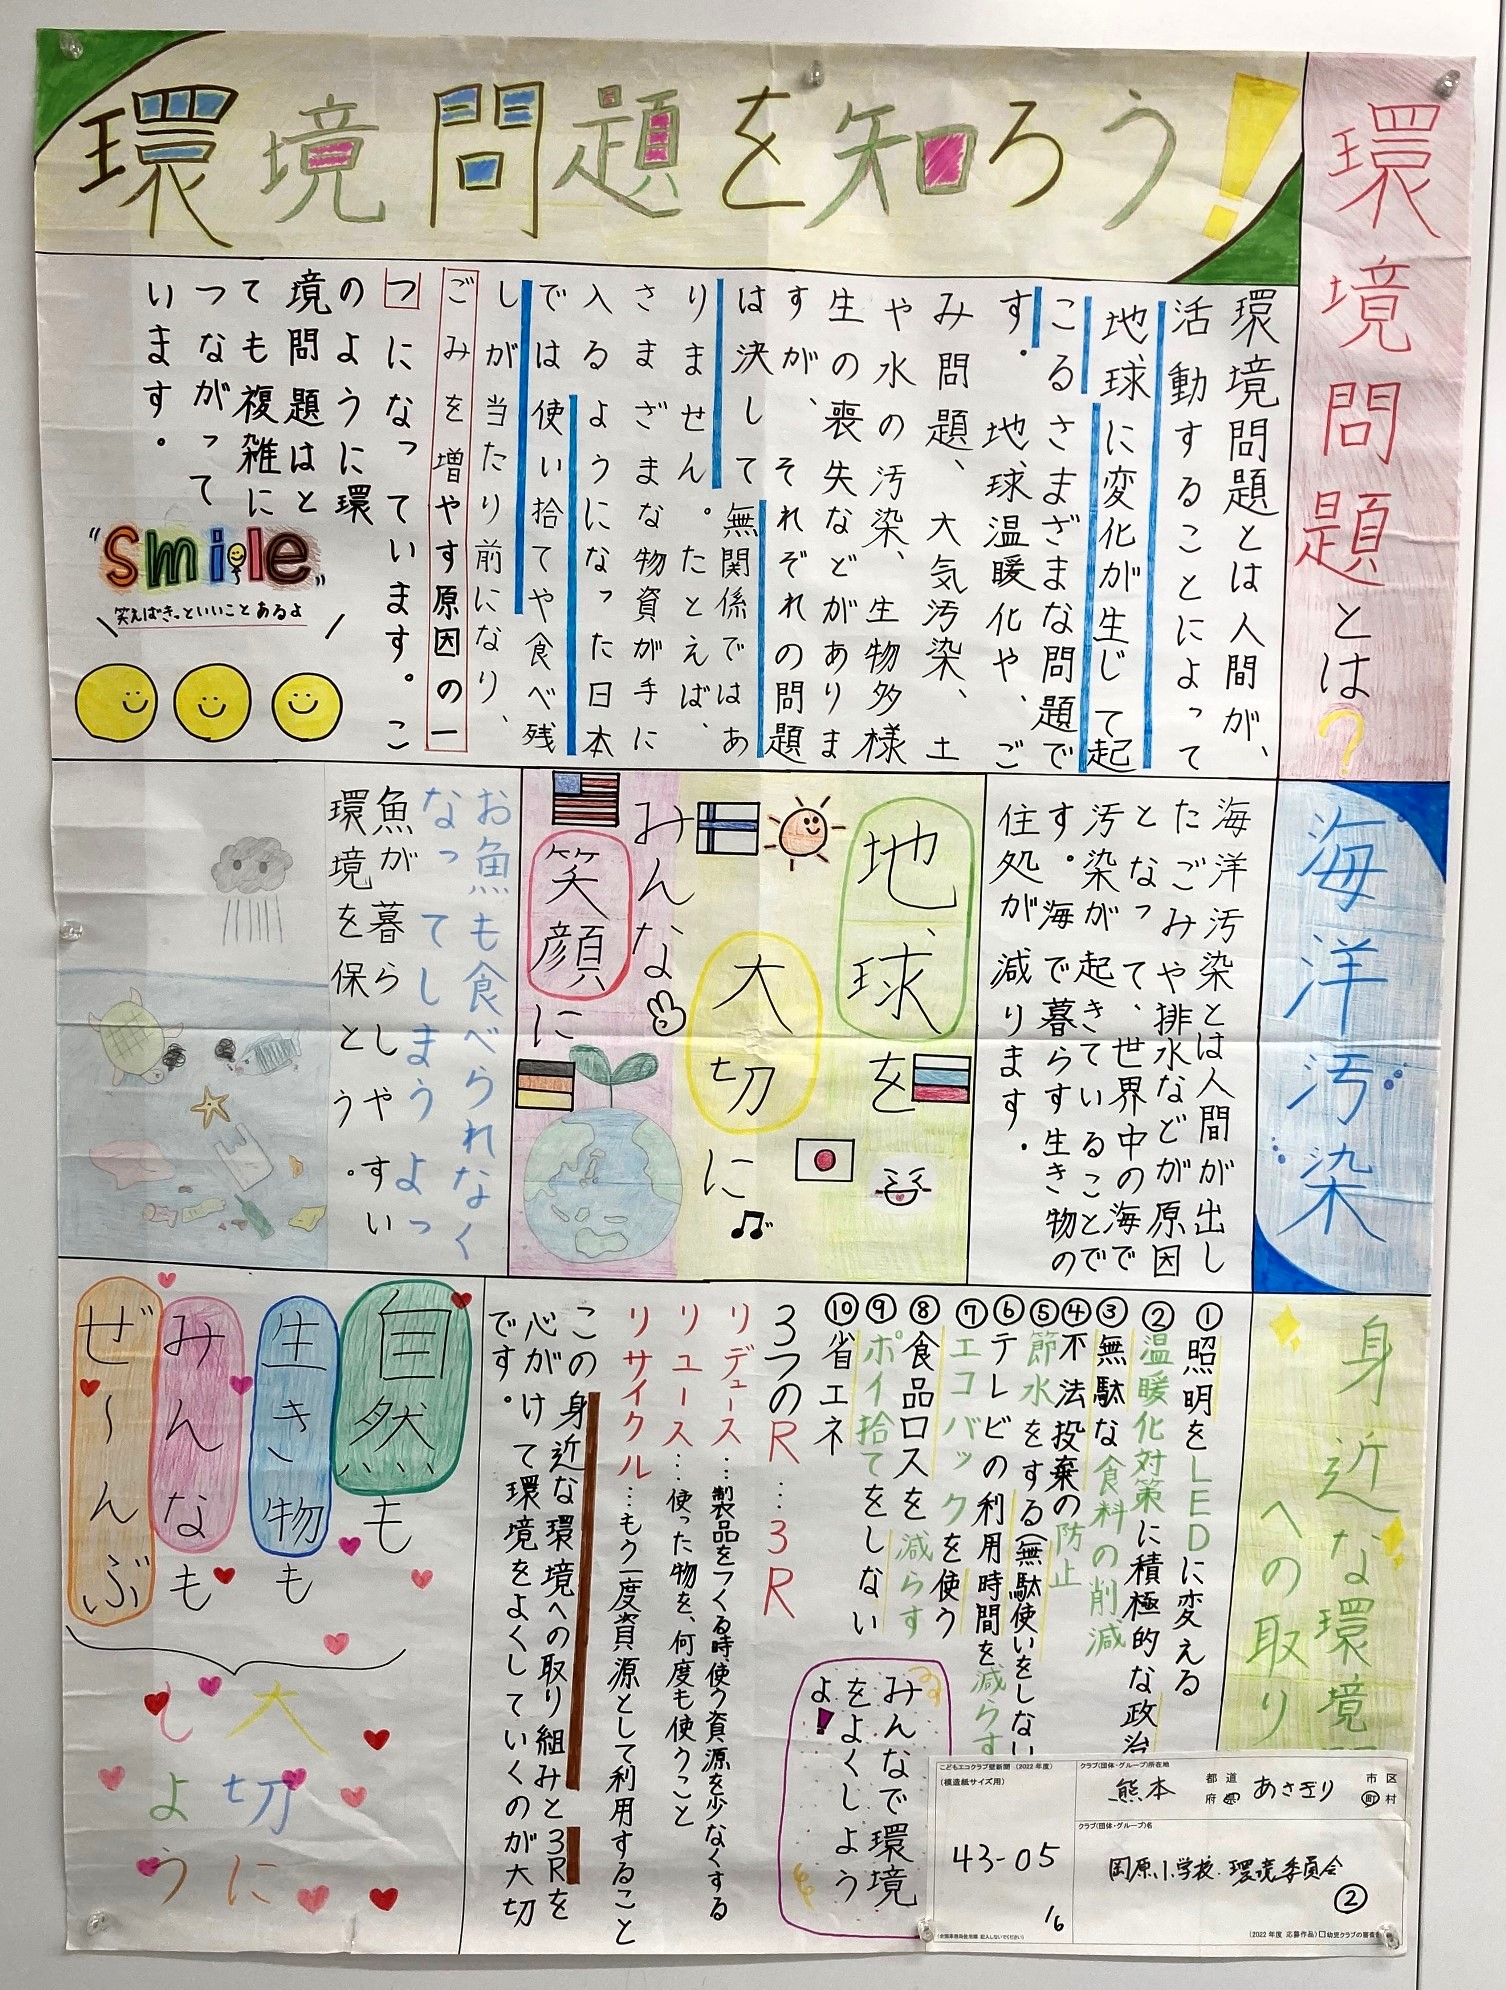 環境問題を知ろう!
環境問題とは?
環境問題とは人間が、
活動することによって
地球に変化が生じて起
こるさまざまな問題で
す。地球温暖化や、ご
み問題、大気汚染、土
や水の汚染、生物多様
生の喪失などがありま
すが、それぞれの問題
は決して無関係ではあ
りません。たとえば、
さまざまな物資が手に
入るようになった日本
では使い捨てや食べ残
しが当たり前になり、
ごみを増やす原因の一
つになっています。こ
のように環
境問題はと
ても複雑に
つながって
います。
"smile"
笑えばきっといいことあるよ
海洋汚染
海洋汚染とは人間が出し
たごみや排水などが原因
となって、世界中の海で
汚染が起きていることで
す。海で暮らす生き物の
住処が減ります。
地球を
大切に
みんな
笑顔に
お魚も食べられなく
なってしまうよっ
魚が暮らしやすい
環境を保とう。
身近な環境
への取り
①照明をLEDに変える
②温暖化対策に積極的な政治
③無駄な食料の削減
④不法投棄の防止
⑤節水をする(無駄使いをしない
⑥テレビの利用時間を減らす
⑦エコバックを使う
⑧食品ロスを減らす
⑨ポイ捨てをしない
⑩省エネ
3つのR…3R
リデュース…製品をつくる時、使う資源を少なくする
リユース…使った物を、何度も使うこと
リサイクル…もう一度資源として利用すること
この身近な環境への取り組みと3Rを
心がけて環境をよくしていくのが大切
です。
みんなで環境
をよくしよう
よ!
自然も
生き物も
みんなも
ぜ〜んぶ
大切に
しよう
こどもエコクラブ壁新聞(2022年度)
(模造紙サイズ用)
43-05
16
(全国事務局使用欄 記入しないでください)
クラブ(団体・グループ)所在地
熊本 都道府県 あさぎり 市区町村
クラブ(団体・グループ)名
岡原小学校 環境委員会
②
(2022年度 応募作品)□幼児クラブの審査